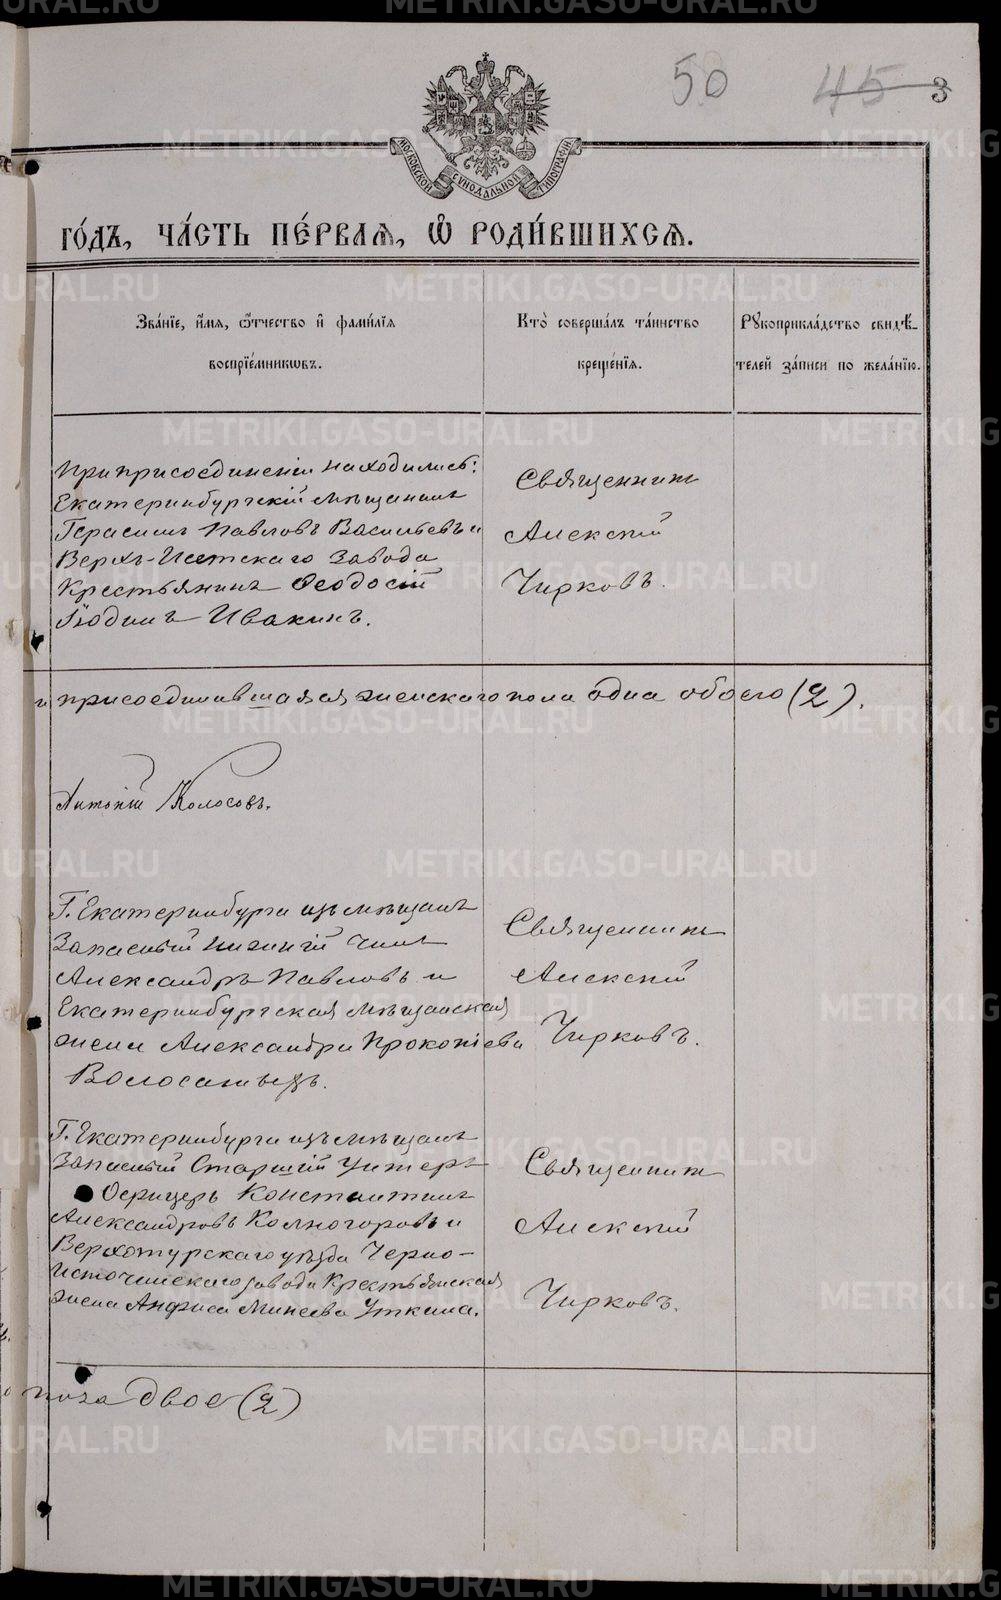 50 45 3
МОСКОВСКОЙ СѴНОДАЛЬНОЙ ТИПОГРАФІИ
го́дъ, ча́сть пе́рвая, ѡ҆ роди́вшихся.
Зва́нїе, и҆́мя, ѻ҆́тчество и҆ фами́лїя
воспрїе́мникѡвъ.
Кто̀ соверша́лъ та́инство
креще́нїя.
Рꙋкоприкла́дство свидѣ́-
телей за́писи по жела́нїю.
При присоединеніи находились:
Екатеринбургскій мѣщанинъ
Герасимъ Павловъ Васильевъ и
Верхъ-Исетскаго завода
Крестьянинъ Ѳеодосій
Иванинъ.
Священникъ
Алексій
Чирковъ.
и присоединившаяся женскаго пола одна обоего (2).
Антоній Колосовъ.
Г. Екатеринбурга изъ мѣщанъ
Запасный нижній чинъ
Александръ Павловъ и
Екатеринбургская мѣщанская
жена Александра Прокопіева
Волосатыхъ.
Священникъ
Алексій
Чирковъ.
Г. Екатеринбурга изъ мѣщанъ
Запасный Старшій Унтеръ-
Офицеръ Константинъ
Александровъ Колмогоровъ и
Верхотурскаго уѣзда Черно-
Источинскаго завода Крестьянская
жена Анфиса Минеева Уткина.
Священникъ
Алексій
Чирковъ.
пола двое (2)
METRIKI.GASO-URAL.RU